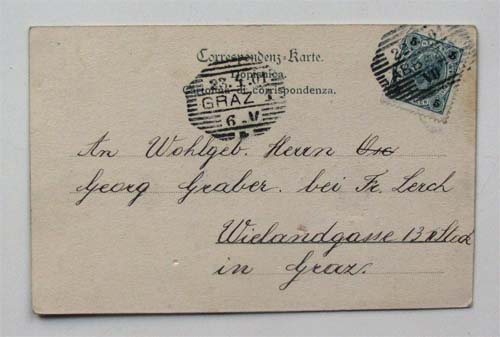 Correspondenz-Karte.
Dopisnica.
Cartolina di corrispondenza.
GRAZ 1
6.V
5 5
5
An Wohlgeb. Herrn
Georg Graber. bei Fr. Lerch
Wielandgasse 13 Stock
in Graz.